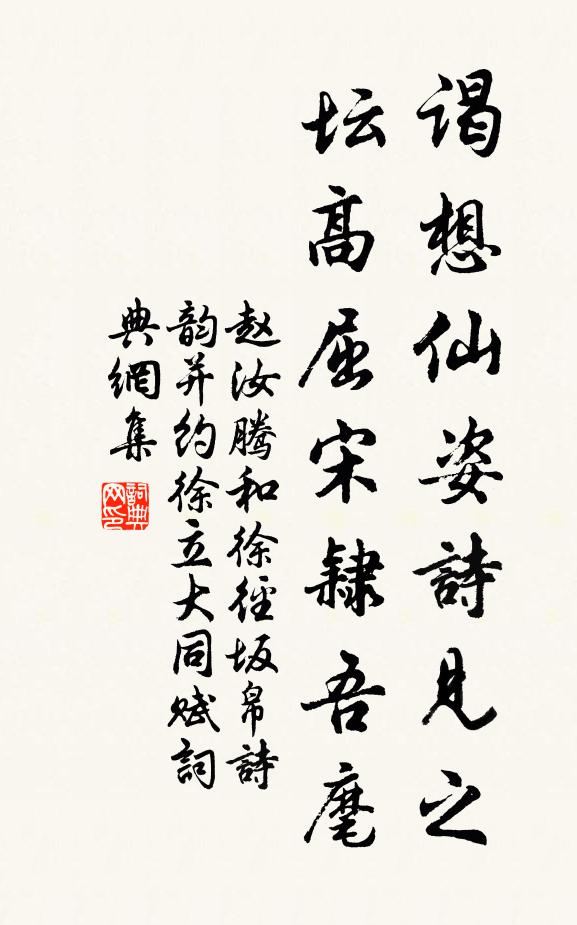 谒想仙姿詩見之
坛高屈宋隸吾麾
赵汝腾和徐径坂帛詩
韵并约徐立大同赋詞
典網集
詞典网印